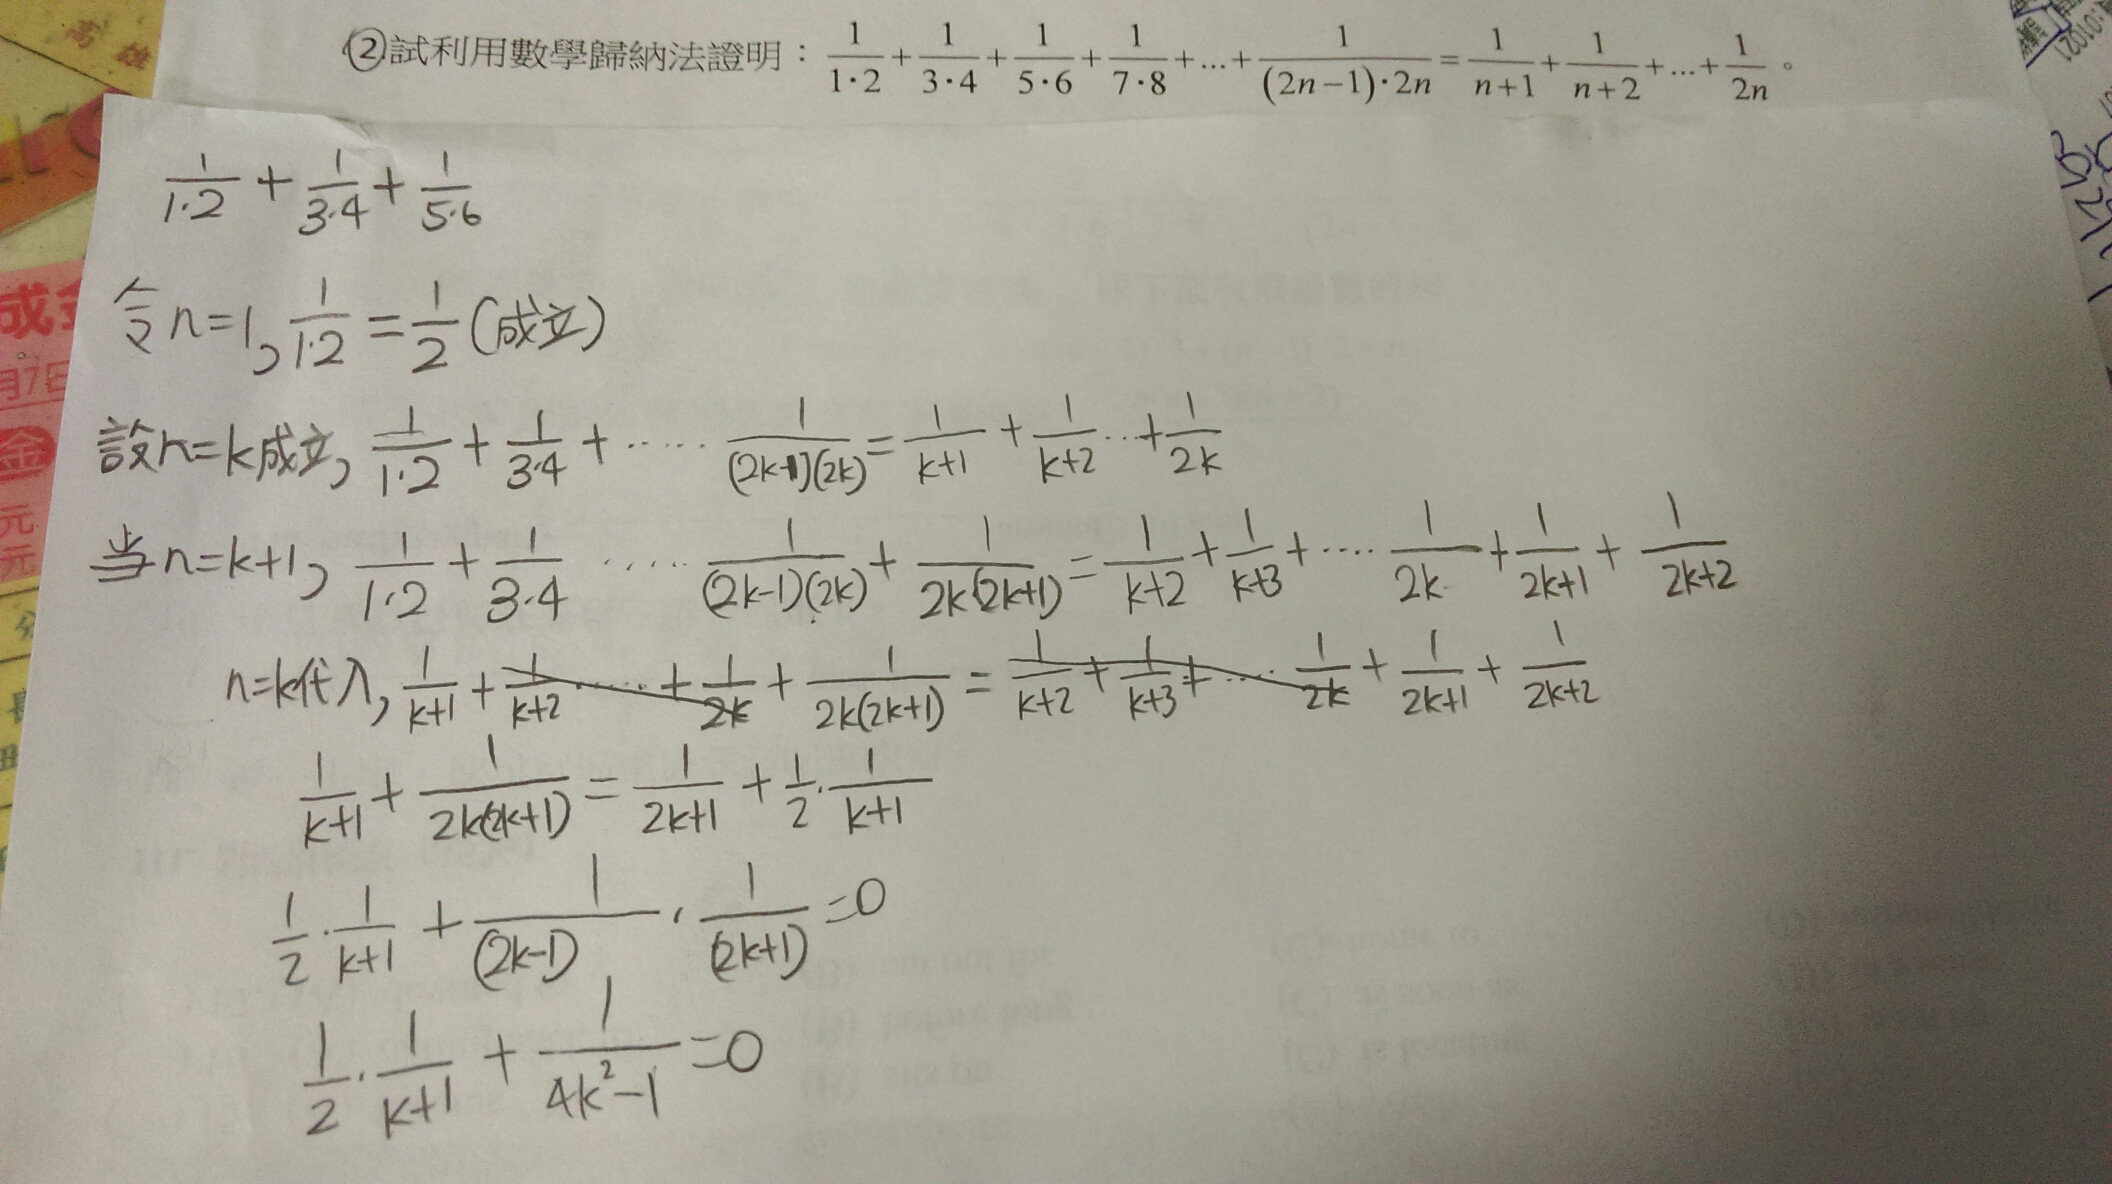 高雄
②試利用數學歸納法證明：1/(1·2)+1/(3·4)+1/(5·6)+1/(7·8)+...+1/((2n−1)·2n)=1/(n+1)+1/(n+2)+...+1/(2n)。
1/(1·2)+1/(3·4)+1/(5·6)
令n=1, 1/(1·2)=1/2(成立)
設n=k成立, 1/(1·2)+1/(3·4)+‥‥‥1/((2k-1)(2k))=1/(k+1)+1/(k+2)…+1/(2k)
当n=k+1, 1/(1·2)+1/(3·4) ‥‥‥1/((2k-1)(2k))+1/(2k(2k+1))=1/(k+2)+1/(k+3)+‥‥1/(2k)+1/(2k+1)+1/(2k+2)
n=k代入, 1/(k+1)+1/(k+2)‥‥‥+1/(2k)+1/(2k(2k+1))=1/(k+2)+1/(k+3)+‥‥1/(2k)+1/(2k+1)+1/(2k+2)
1/(k+1)+1/(2k(2k+1))=1/(2k+1)+1/2·1/(k+1)
1/2·1/(k+1)+1/(2k-1)·1/(2k+1)=0
1/2·1/(k+1)+1/(4k²-1)=0
成金
月7日
金
元
元